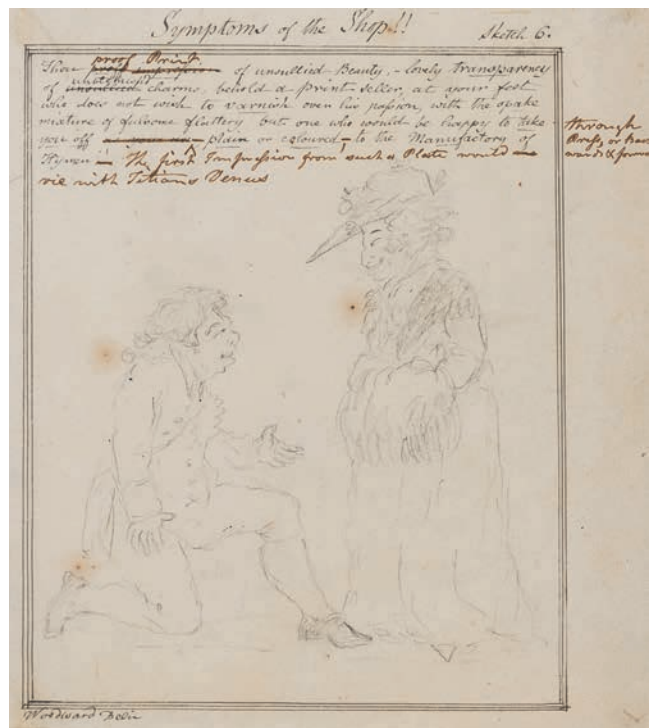 Symptoms of the Shop!!
Sketch 6.
proof Print
Thou of unsullied Beauty, - lovely transparency
of charms, behold a print-seller, at your feet
who does not wish to varnish over his passion, with the opake
mixture of fulsome flattery but one who would be happy to take
you off plain or coloured - to the Manufactory of
Hymen - The first Impression from such a Plate would -
vie with Titians Venus
through
Press, or
Woodward Delin